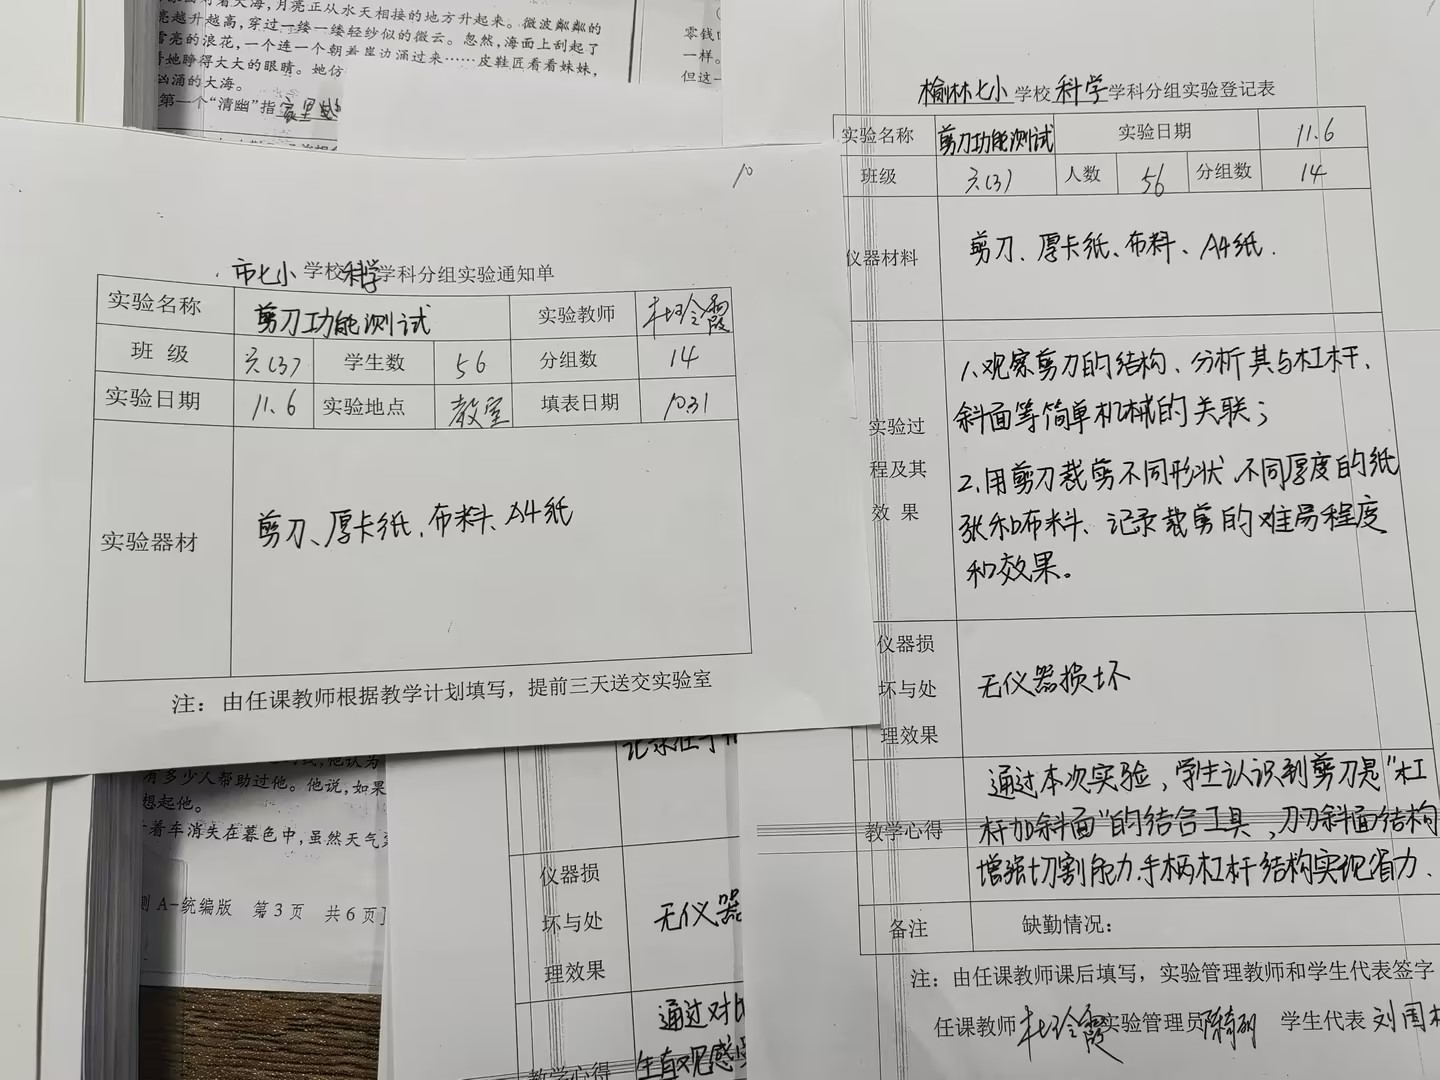 着大海，月亮正从水天相接的地方升起来。微波粼粼的
越升越高，穿过一缕一缕轻纱似的微云。忽然，海面上刮起了
雪亮的浪花，一个连一个朝着岸边涌过来……皮鞋匠看看妹妹，
她睁得大大的眼睛。她仿
汹涌的大海。
第一个“清幽”指
零钱
一样。
但这一
10
市七小 学校 科学 学科分组实验通知单
实验名称 剪刀功能测试 实验教师 杜玲霞
班 级 六(3) 学生数 56 分组数 14
实验日期 11.6 实验地点 教室 填表日期 1031
实验器材 剪刀、厚卡纸、布料、A4纸
注：由任课教师根据教学计划填写，提前三天送交实验室
榆林七小 学校 科学 学科分组实验登记表
实验名称 剪刀功能测试 实验日期 11.6
班级 六(3) 人数 56 分组数 14
仪器材料 剪刀、厚卡纸、布料、A4纸.
实验过
程及其
效 果
1.观察剪刀的结构、分析其与杠杆、
斜面等简单机械的关联；
2.用剪刀裁剪不同形状、不同厚度的纸
张和布料、记录裁剪的难易程度
和效果。
仪器损
坏与处
理效果
无仪器损坏
教学心得
通过本次实验，学生认识到剪刀是“杠
杆加斜面”的结合工具，刀刃斜面结构
增强切割能力.手柄杠杆结构实现省力.
备注 缺勤情况：
注：由任课教师课后填写，实验管理教师和学生代表签字
任课教师 杜玲霞 实验管理员 学生代表 刘国
有多少人帮助过他。他说，如果
想起他。
着车消失在暮色中，虽然天气
测 A-统编版 第3页 共6页
仪器损
坏与处
理效果
无仪器
通过对比
教学心得